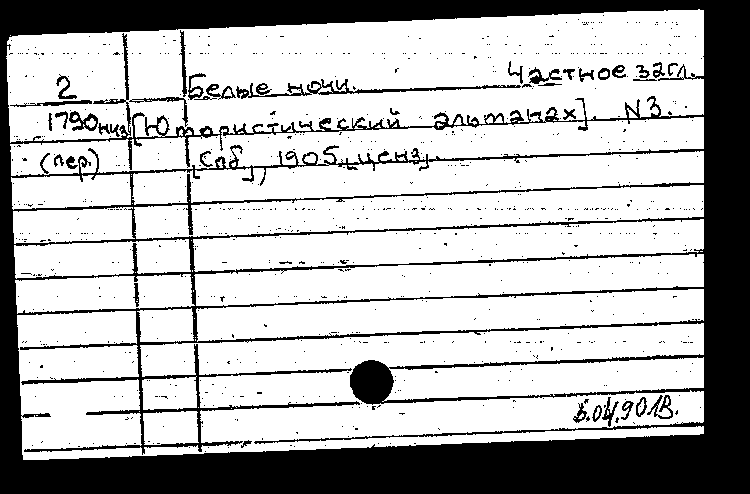 2 Белые ночи. Частное загл.
1790низ [Юмористический альманах]. N 3.
(пер.) [Спб], 1905 [ценз].
5.04.901В.